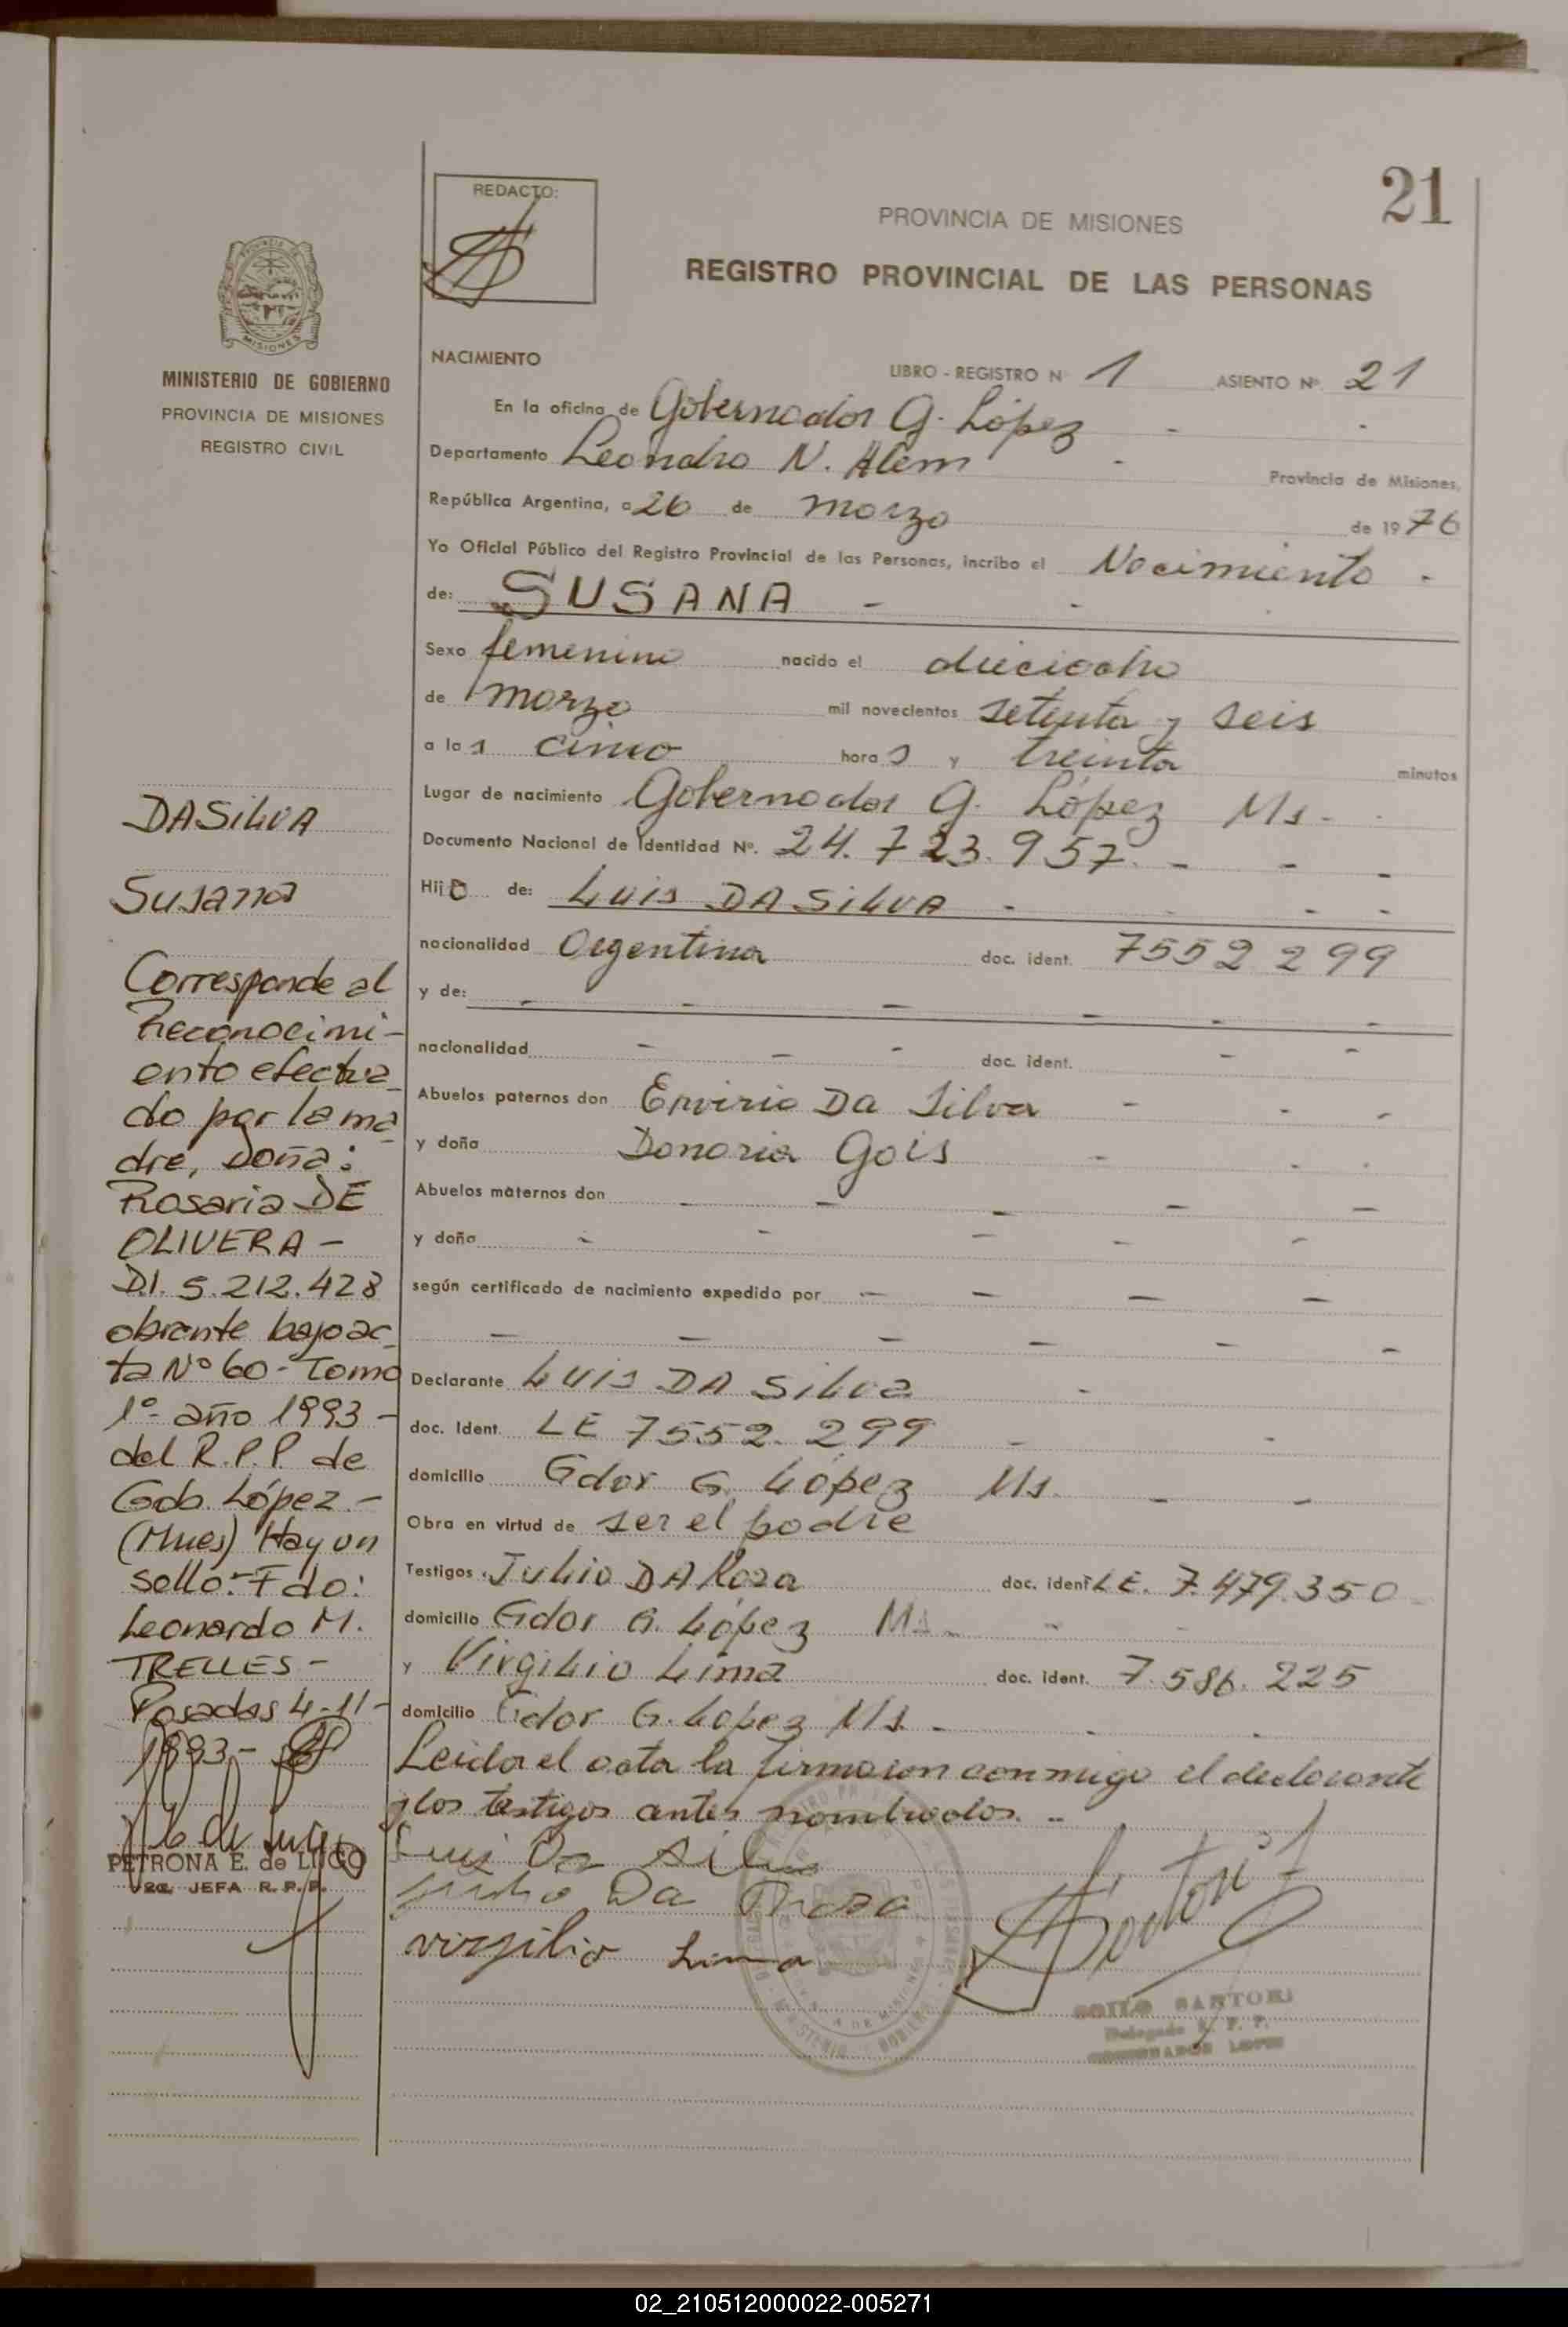 21
REDACTO:
PROVINCIA DE MISIONES
REGISTRO PROVINCIAL DE LAS PERSONAS
PROVINCIA DE
MISIONES
MINISTERIO DE GOBIERNO
PROVINCIA DE MISIONES
REGISTRO CIVIL
DASiLVA
Susana
Corresponde al
Reconocimi-
ento efectua
do por la ma
dre, Doña:
Rosaria DE
OLIVERA -
D.I. 5.212.428
obrante bajo ac_
ta Nº 60 - Tomo
1º - año 1993 -
del R.P.P. de
Gob. López -
(Mnes) Hay un
sello: - Fdo:
Leonardo M.
TRELLES -
Posadas 4-11-
1993 -
PETRONA E. de LUGO
JEFA R.P.P.
NACIMIENTO LIBRO - REGISTRO N 1 ASIENTO Nº. 21
En la oficina de Gobernador G. López - -
Departamento Leandro N. Alem - Provincia de Misiones,
República Argentina, a 26 de marzo de 1976
Yo Oficial Público del Registro Provincial de las Personas, incribo el Nacimiento -
de: SUSANA - -
Sexo femenino nacido el dieciocho
de marzo mil novecientos setenta y seis
a las cinco horas y treinta minutos
Lugar de nacimiento Gobernador G. López Ms - -
Documento Nacional de Identidad Nº. 24.723.957. - - -
Hija de: Luis DA SiLVA - - - -
nacionalidad Argentina doc. ident. 7552 299
y de: - - - - - -
nacionalidad - - - doc. ident. - -
Abuelos paternos don Envirio Da Silva - - -
y doña Donoria Gois - - -
Abuelos maternos don - - - - -
y doña - - - - -
según certificado de nacimiento expedido por - - - -
- - - - - -
Declarante Luis DA Silva -
doc. Ident. LE 7552. 299 - -
domicilio Gdor G. López Ms. - -
Obra en virtud de ser el padre
Testigos Julio DA Rosa doc. ident LE. 7.479.350
domicilio Gdor G. López Ms - - -
y Virgilio Lima doc. ident. 7.586.225
domicilio Gdor G. López Ms - - -
Leida el acta la firmaron conmigo el declarante
y los testigos antes nombrados. --
Luis Da Silva
Julio Da Rosa
virgilio Lima
SANTORI
Delegado R. P. P.
GOBERNADOR LOPEZ
02_210512000022-005271